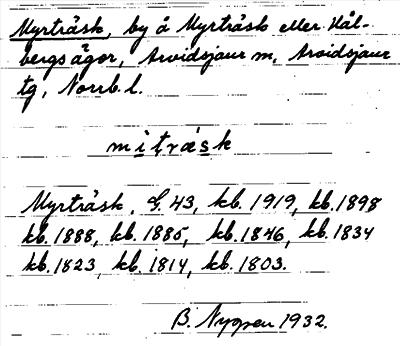 Myrträsk, by å Myrträsk eller Kål-
bergs ägor, Arvidsjaur sn, Arvidsjaur
tg, Norrb. l.
mìtŗǽsk
Myrträsk. G. 43, kb. 1919, kb. 1898
kb. 1888, kb. 1885, kb. 1846, kb. 1834
kb. 1823, kb. 1814, kb. 1803.
B. Nygren 1932.